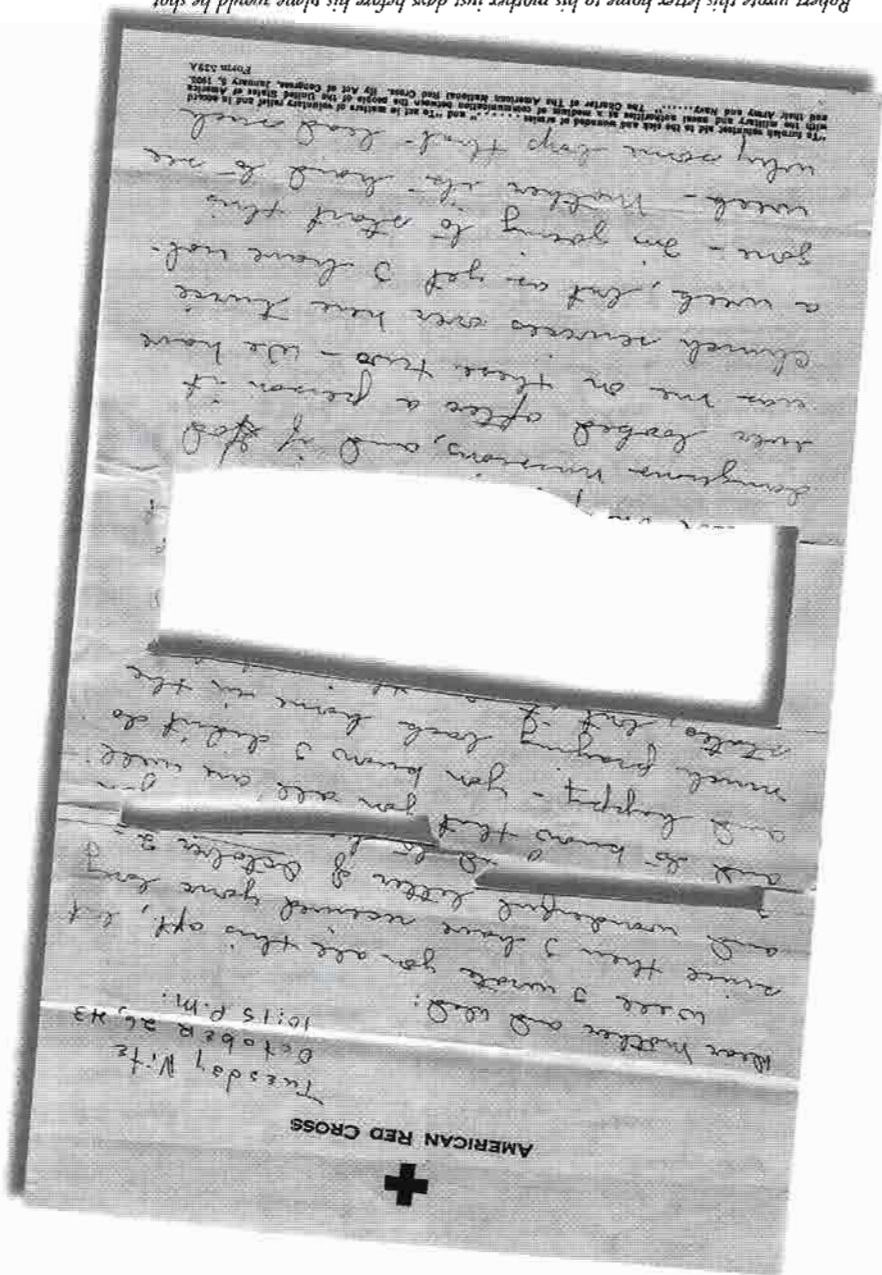 AMERICAN RED CROSS
Tuesday Nite
October 26, 43
10:15 P.M.
Dear Mother and Dad:
Well I wrote you all this aft, but
since then I have received your long
and wonderful letter of October 2-
and to know that you all are well
and happy - you know I didn't do
much praying back home in the
states, but if
dangerous missions, and if God
ever looked after a person it
was me on these two - We have
church services over here twice
a week, but as yet I have not-
gone - I'm going to start this
week - Mother its hard to see
why some boys that lead such
"To furnish volunteer aid to the sick and wounded of armies ......," and "To act in matters of voluntary relief and in accord
with the military and naval authorities as a medium of communication between the people of the United States of America
and their Army and Navy......." The Charter of The American National Red Cross. By Act of Congress, January 5, 1905.
Form 539A
Robert wrote this letter home to his mother just days before his plane would be shot